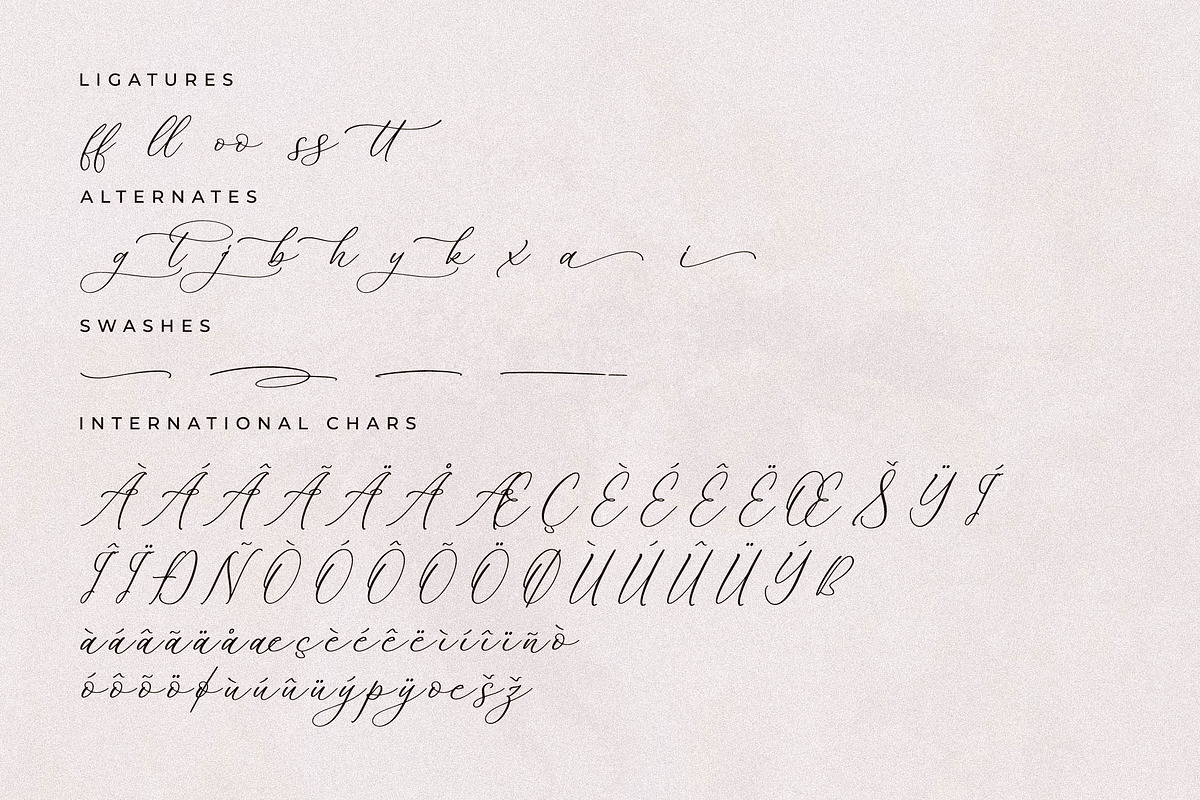 LIGATURES
ff ll oo ss tt
ALTERNATES
g t j b h y k x a i
SWASHES
INTERNATIONAL CHARS
À Á Â Ã Ä Å Æ Ç È É Ê Ë Œ Š Ÿ Í
Î Ï Ð Ñ Ò Ó Ô Õ Ö Ø Ù Ú Û Ü Ý ß
àáâãäåæçèéêëìíîïñò
óôõöøùúûüýþÿœšž